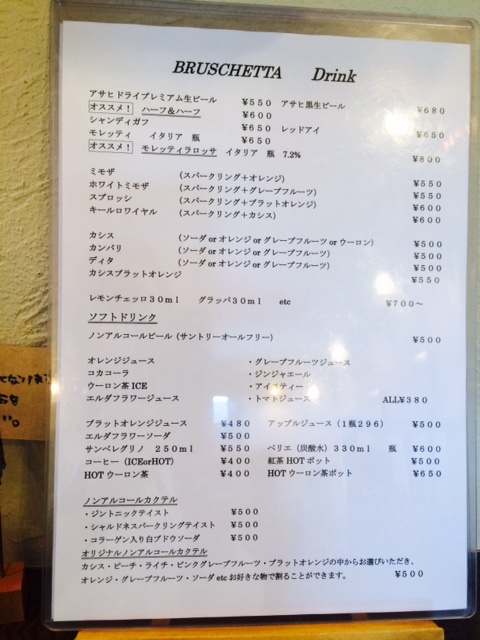 BRUSCHETTA Drink
アサヒドライプレミアム生ビール ¥550 アサヒ黒生ビール ¥680
オススメ! ハーフ&ハーフ ¥600
シャンディガフ ¥650 レッドアイ ¥650
モレッティ イタリア 瓶 ¥650
オススメ! モレッティラロッサ イタリア 瓶 7.2% ¥800
ミモザ (スパークリング+オレンジ) ¥550
ホワイトミモザ (スパークリング+グレープフルーツ) ¥550
スプロッシ (スパークリング+ブラットオレンジ) ¥600
キールロワイヤル (スパークリング+カシス) ¥600
カシス (ソーダ or オレンジ or グレープフルーツ or ウーロン) ¥500
カンパリ (ソーダ or オレンジ or グレープフルーツ) ¥500
ディタ (ソーダ or オレンジ or グレープフルーツ) ¥500
カシスブラットオレンジ ¥550
レモンチェッロ30ml グラッパ30ml etc ¥700~
ソフトドリンク
ノンアルコールビール (サントリーオールフリー) ¥500
オレンジジュース ・グレープフルーツジュース
コカコーラ ・ジンジャエール
ウーロン茶 ICE ・アイスティー
エルダフラワージュース ・トマトジュース ALL¥380
ブラットオレンジジュース ¥480 アップルジュース (1瓶296) ¥500
エルダフラワーソーダ ¥500
サンペレグリノ 250ml ¥550 ペリエ (炭酸水) 330ml 瓶 ¥600
コーヒー (ICEorHOT) ¥400 紅茶 HOT ポット ¥500
HOT ウーロン茶 ¥400 HOT ウーロン茶ポット ¥650
ノンアルコールカクテル
・ジントニックテイスト ¥500
・シャルドネスパークリングテイスト ¥500
・コラーゲン入り白ブドウソーダ ¥500
オリジナルノンアルコールカクテル
カシス・ピーチ・ライチ・ピンクグレープフルーツ・ブラットオレンジの中からお選びいただき、
オレンジ・グレープフルーツ・ソーダ etc お好きな物で割ることができます。 ¥500